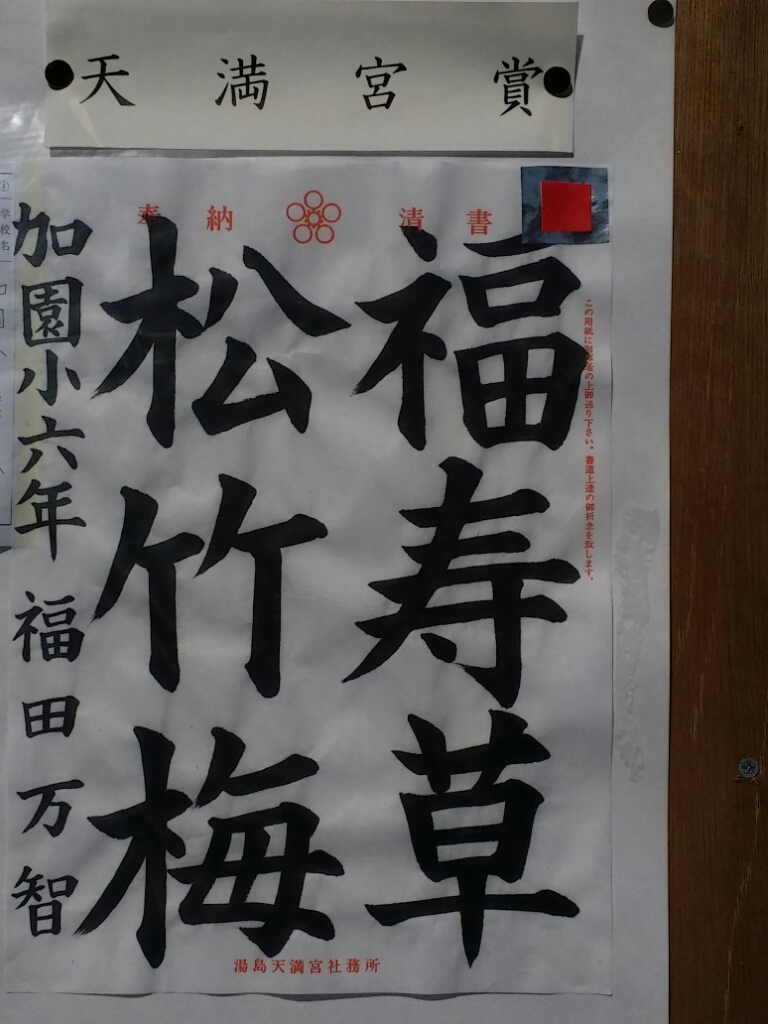 天満宮賞
奉納 清書
この用紙に御揮毫の上御送り下さい。書道上達の御祈念を致します。
福寿草
松竹梅
加園小六年 福田万智
湯島天満宮社務所
学校名